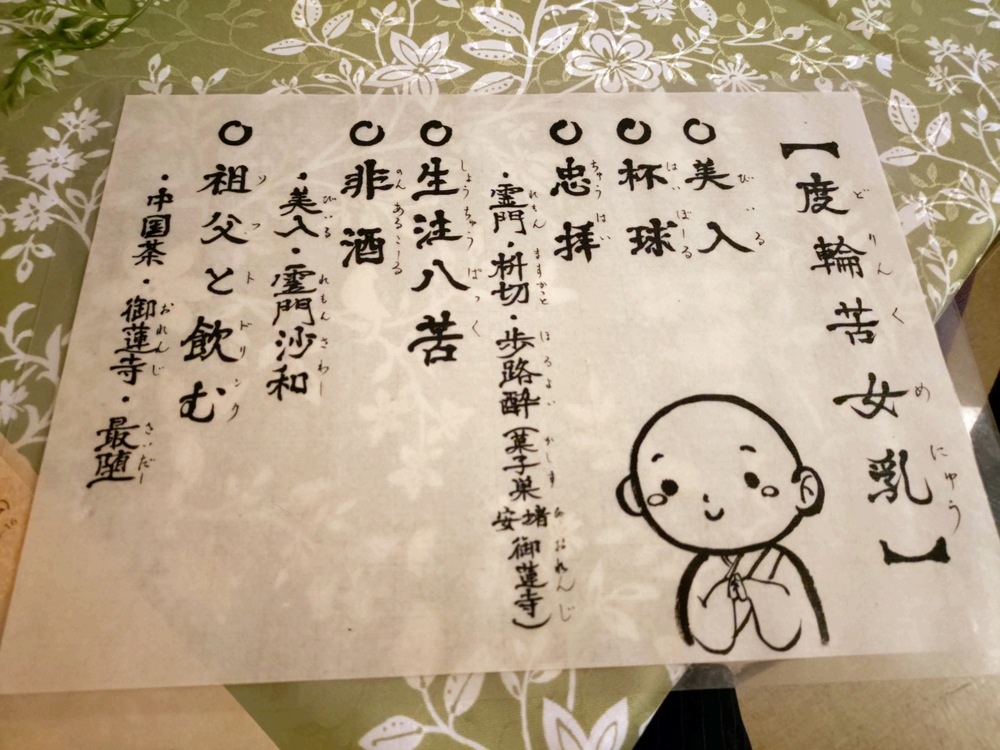 【度輪苦女乳】
ど りん く め にゅう
○美入
び いる
○杯球
はい ぼーる
○忠拝
ちゅう はい
○生注八苦
しょう ちゅう ばっ く
・霊門・枡切・歩路酔(菓子巣安堵御蓮寺)
れもん ますかっと ほろよい かしす おれんじ
○非酒
のん あるこーる
・美入・霊門沙和
びいる れもん さわー
○祖父と飲む
ソ フ ト ドリンク
・中国茶・御蓮寺・最堕
おれんじ さいだー